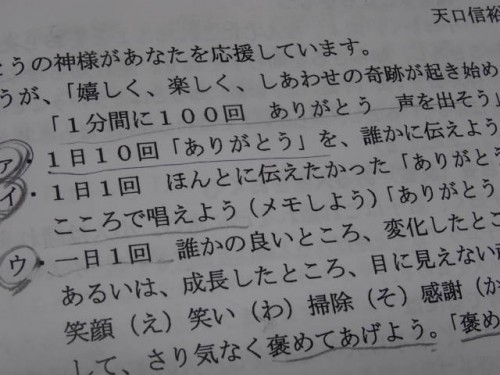 天口信裕
とうの神様があなたを応援しています。
うが、「嬉しく、楽しく、しあわせの奇跡が起き始め
「1分間に100回　ありがとう　声を出そう」
ア・1日10回「ありがとう」を、誰かに伝えよう
イ・1日1回　ほんとに伝えたかった「ありがとう
こころで唱えよう（メモしよう）「ありがとう
ウ・一日1回　誰かの良いところ、変化したとこ
あるいは、成長したところ、目に見えない
笑顔（え）笑い（わ）掃除（そ）感謝（か
して、さり気なく褒めてあげよう。「褒め